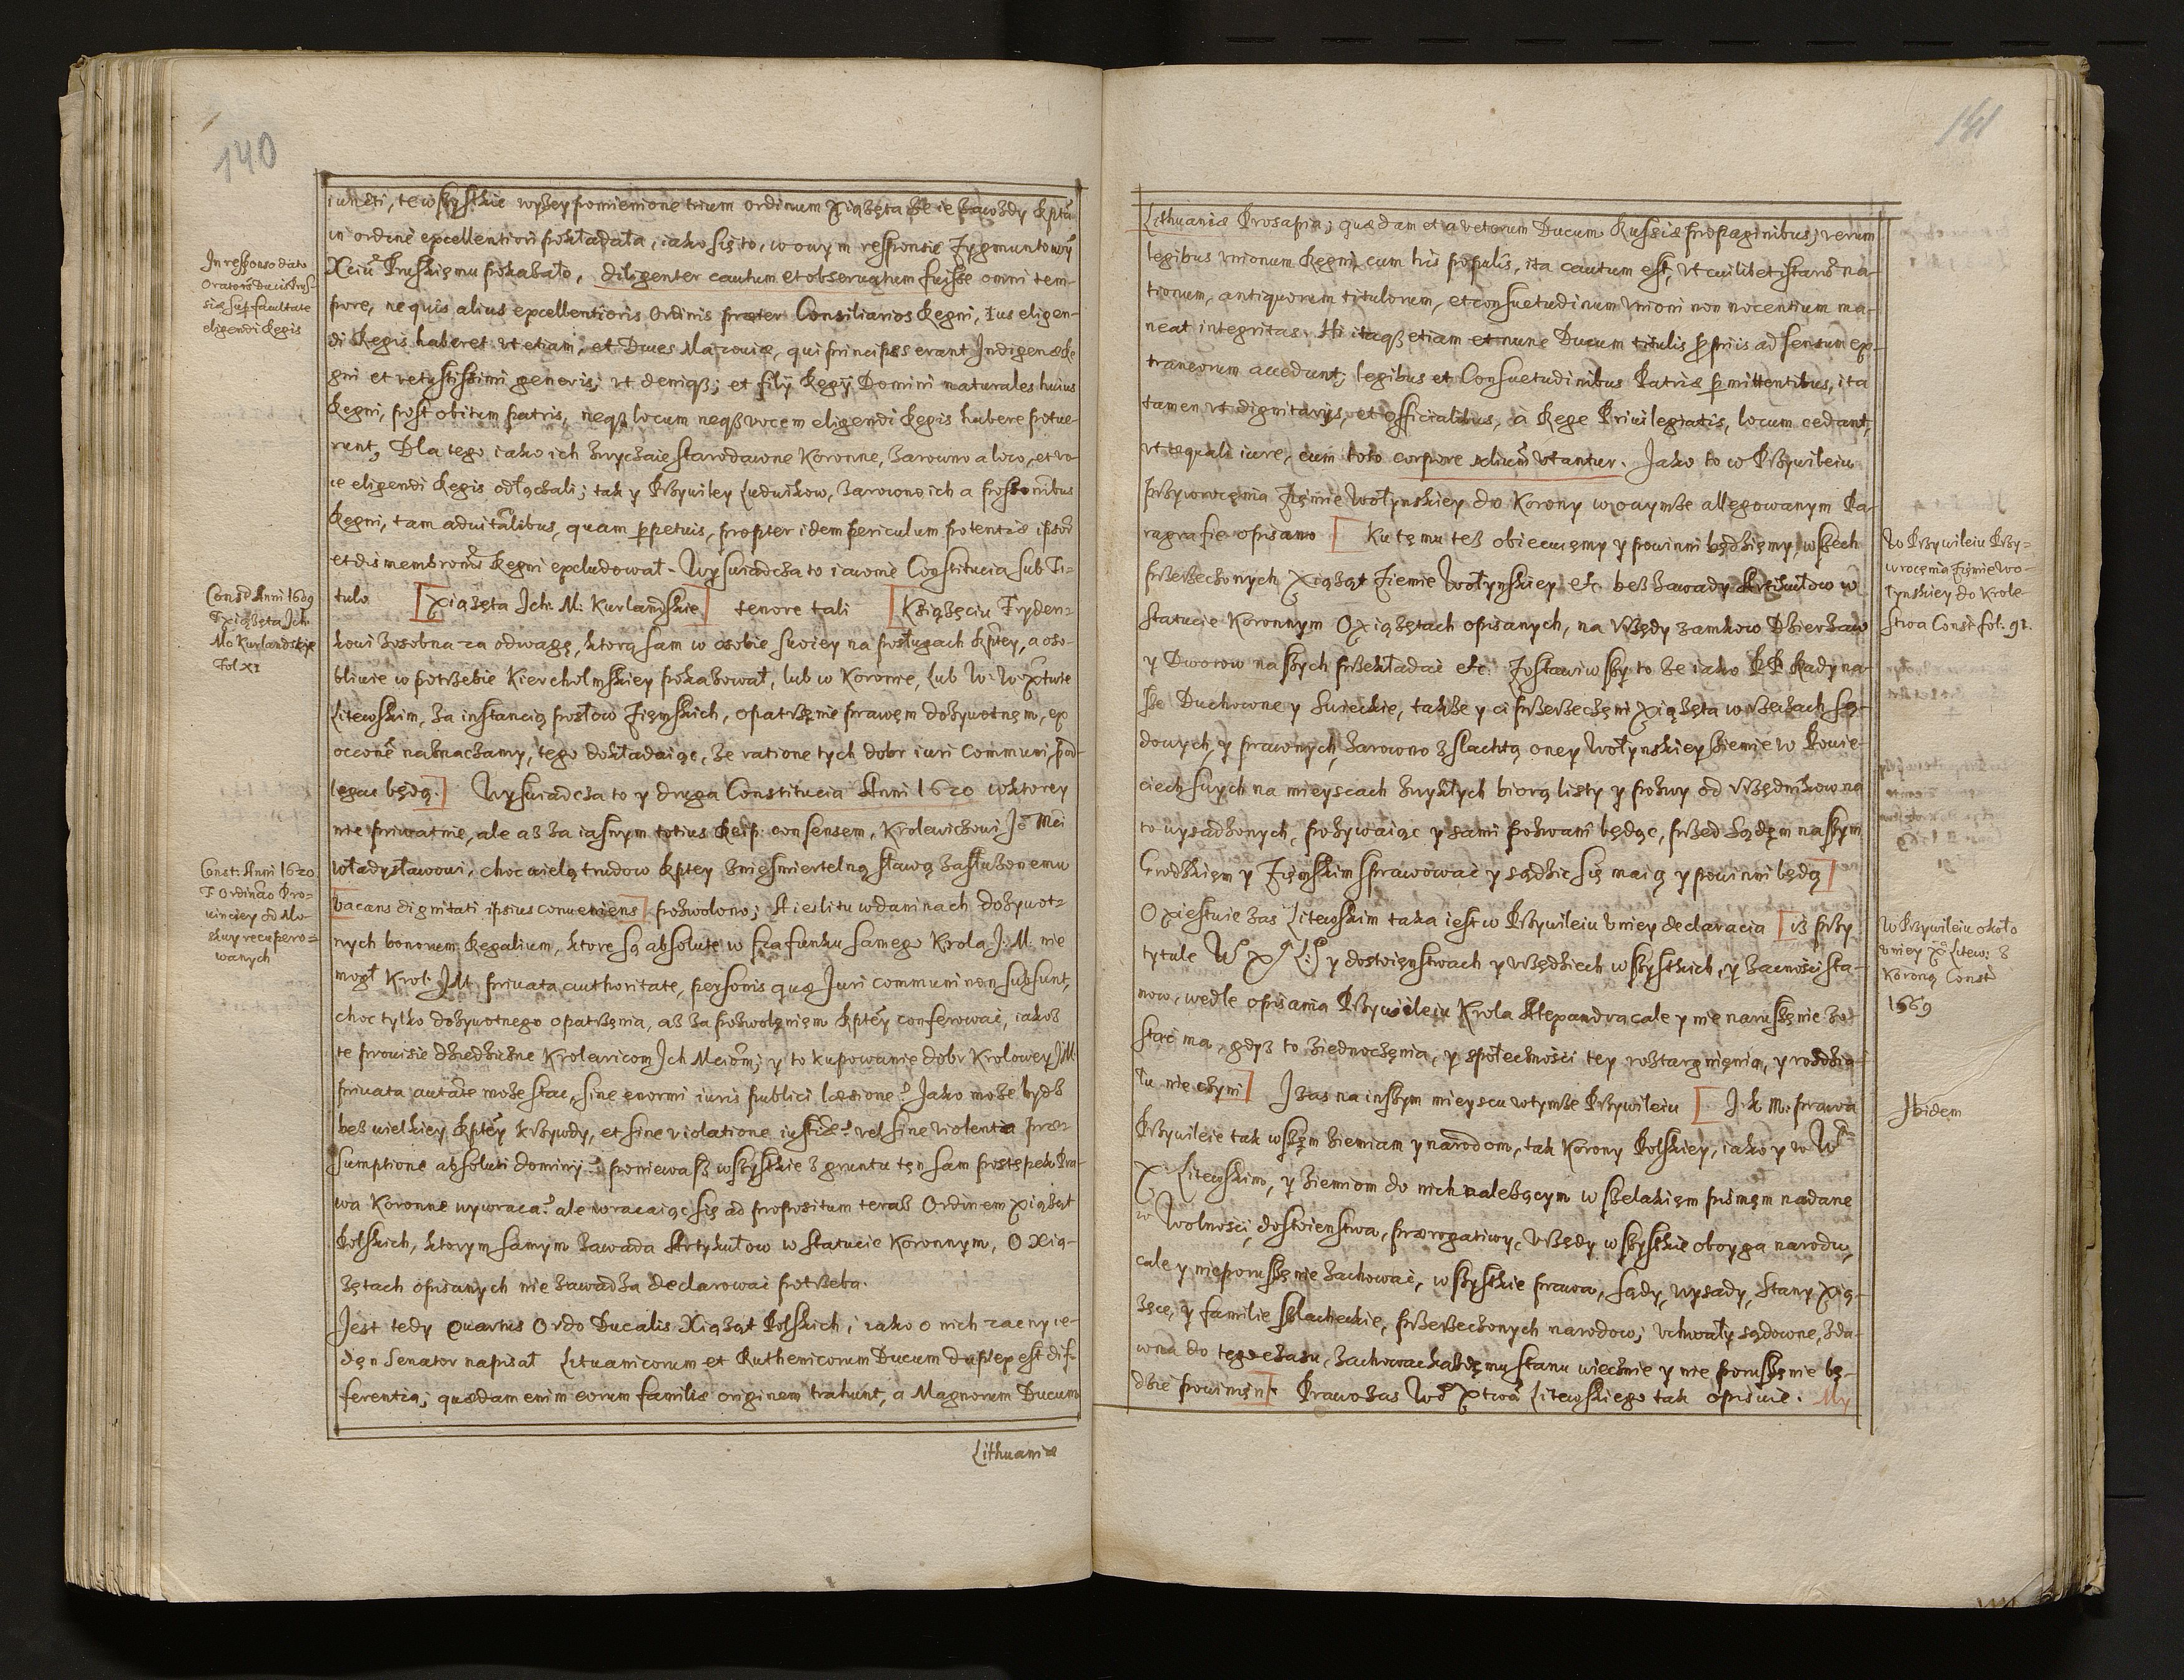 140
iuncti, te wszystkie wyżey pomienione trium ordinum Xiążęta że ie zawżdy Rptã
in ordinẽ excellentiori pokładała, iako się to, w onym responsie Zygmuntowỹ
Xciũ Pruskięmu pokazało, diligenter cautum et obseruatum fuisse omni tem-
pore, ne quis alius excellentioris Ordinis præter Consiliarios Regni, Ius eligen-
di Regis haberet vt etiam, et Duces Mazouiæ, qui principes erant Indigenæ Re
gni et vetustissimi generis; vt deniqz; et filij Regij Domini naturales huius
Regni, post obitum patris, neqz locum neqz vocem eligendi Regis habere potue-
runt, Dla tego iako ich zwyczaie starodawne Koronne, zarowno a loco, et vo-
ce eligendi Regis odłączali; tak y Przywiley Ludwikow, zarowno ich a
Regni, tam aduitãlibus, quam perpetuis, propter idem periculum potentiæ ipsorũ
et dismembronis Regni excludował. Wyświadcza to iawnie Constitucia sub Ti-
tulo [Xiążęta Ich: M: Kurlandskie] tenore tali [Książęciu Fryden=
kowi zosobna za odwagę, ktorą sam w osobie swoiey na posługach Rptey, a oso-
bliwie w potrzebie Kiercholmskiey pokazował, lub w Koronie, lub W: W: Xtwie
Litewskim, za instancią posłow Ziemskich, opatrzęnie prawęm dożywotnęm, ex
occonẽ naznaczamy, tego dokładaiąc, że ratione tych dobr iuri Communi pod-
legać będą.] Wyświadcza to y druga Constitucia Anni 1620 w ktorey
nie priwatnie, ale aż za iasnym totius Reip: consensem, Krolewiczowi Je Mci
Władysławowi, choc wielą trudow Rptey z nieśmiertelną sławą zasłużonemu
[vacans dignitati ipsius conueniens] pozwolono; A ieslitu w daninach dożywot=
nych bonorum Regalium, ktore są absolute w szafunku samego Krola J: M: nie
mogł Krol: JM: priuata authoritate, personis quæ Juri communi non subsunt,
choc tylko dożywotnego opatrzęnia, aż za pozwolęniem Rptey conferować, iakoż
te prouisie dziedziczne Krolewicom Ich Mciom; y to kupowanie dobr Krolowey JM
priuata autãte może stac, sine enormi iuris publici læsione? Jako może bydz
bez wielkiey Rptey krzywdy, et sine violatione iustitiæ? vel sine violenta præ=
sumptione absoluti dominij? poniewasz wszystkie z gruntu tęn sam postępek Pra-
wa Koronne wywraca? ale wracaiąc się ad propositum teraz Ordinem Xiążąt
Polskich, ktorym samym zawada Artykułow w statucie Koronnym, O Xią-
żętach opisanych nie zawadza declarować potrzeba.
Jest tedy quartus Ordo Ducalis Xiążąt Polskich, iako o nich zacny ie-
dęn Senator napisał Lituanicorum et Ruthenicorum Ducum duplex est dif-
ferentia; quædam enim eorum familiæ originem trahunt, a Magnorum Ducum
Lithuaniæ
In responso dato
Oratorib Ducis Prus-
siæ sup facultate
eligendi Regis
Const Anni 1609
T Xiążęta Ich
Mo Kurlandskie
Fol XI
Const: Anni 1620
T Ordinão Pro-
winciey od Mo-
skwy recupero=
wanych
141
Lithuaniæ Prosapia; quædam et a veterum Ducum Russiæ propaginibus; verum
legibus vnionum Regni, cum his populis, ita cautum est, vt cuilibet istarũ na-
tionum, antiquorum titulorum, et consuetudinum vnioni non nocentium ma-
neat integritas. Hi itaqz etiam et nunc Ducum titulis propriis ad sensum ex-
traneorum accedunt; legibus et Consuetudinibus Patriæ permittentibus, ita
tamen vt dignitarijs, et officialibus, à Rege Priuilegiatis, locum cedant,
vt æquali iure, cum toto corpore aliũm vtantur. Jako to w Przywileiu
przywrocęnia Zięmie Wołynskiey do Korony w onymże allegowanym Pa-
ragrafie opisano [Ku tęmu też obiecuięmy y powinni będzięmy, wszech
przerzeczonych Xiążąt Ziemie Wołynskiey etc bez zawady Artikułow w
statucie Koronnym O Xiążętach opisanych, na vrzędy zamkow Dzierzaw
y Dworow naszych przekładać etc. Zostawiwszy to że iako PP Rady na-
sze Duchowne y Swieckie, takze y ci przerzeczęni Xiążęta w rzeczach są-
dowych, y prawnych, zarowno z slachtą oney Wołynskiey ziemie w Powie-
ciech swych na mieyscach zwykłych biorą listy y pozwy od vrzędnikow na
to wysadzonych, pozywaiąc y sami pozwani będąc, przed Sądęm naszym
Grodzkięm y Zięmskim sprawować y sądzic się maią y powinni będą]
O Xięstwie zas Litewskim taka iest w Przywileiu vniey declaracia [iż przy
tytule W° X° L° y dostoięnstwach y vrzędziech wszystkich, y zacności sta-
now, wedle opisania Przywileiu Krola Alexandra cale y nie naruszęnie zo-
stać ma, gdyż to ziednoczęnia, y społeczności tey roztargnięnia, y rozdzia-
łu nie czyni] I zas na inszym mieyscu w tymże Przywileiu [J. K M: prawa
Przywileie tak wszęm ziemiam y narodom, tak Korony Polskiey, iako y w W°
X. Litewskim, y ziemiom do nich należącym wszelakięm pismęm nadane
w Wolności, dostoienstwa, prærogatiwy, vrzędy wszystkie oboyga narodu,
cale y nieporuszęnie zachować, wszystkie prawa, sądy, wysady, stany Xią-
żęce, y familie szlacheckie, przerzeczonych narodow; vchwały sądowne, zda-
wna do tego czasu, zachować każdęmu stanu wiecznie y nie poruszęnie bę-
dzie powinięn]. Prawo zas Wo° Xtwa Litewskiego tak opisuie. My
W Przywileiu Przy=
wrocęnia Zięmie Wo-
łynskiey do Krole-
stwa Const fol: 91.
W Przywileiu około
vniey X° Litew: z
Koroną Const
1569
Ibidem